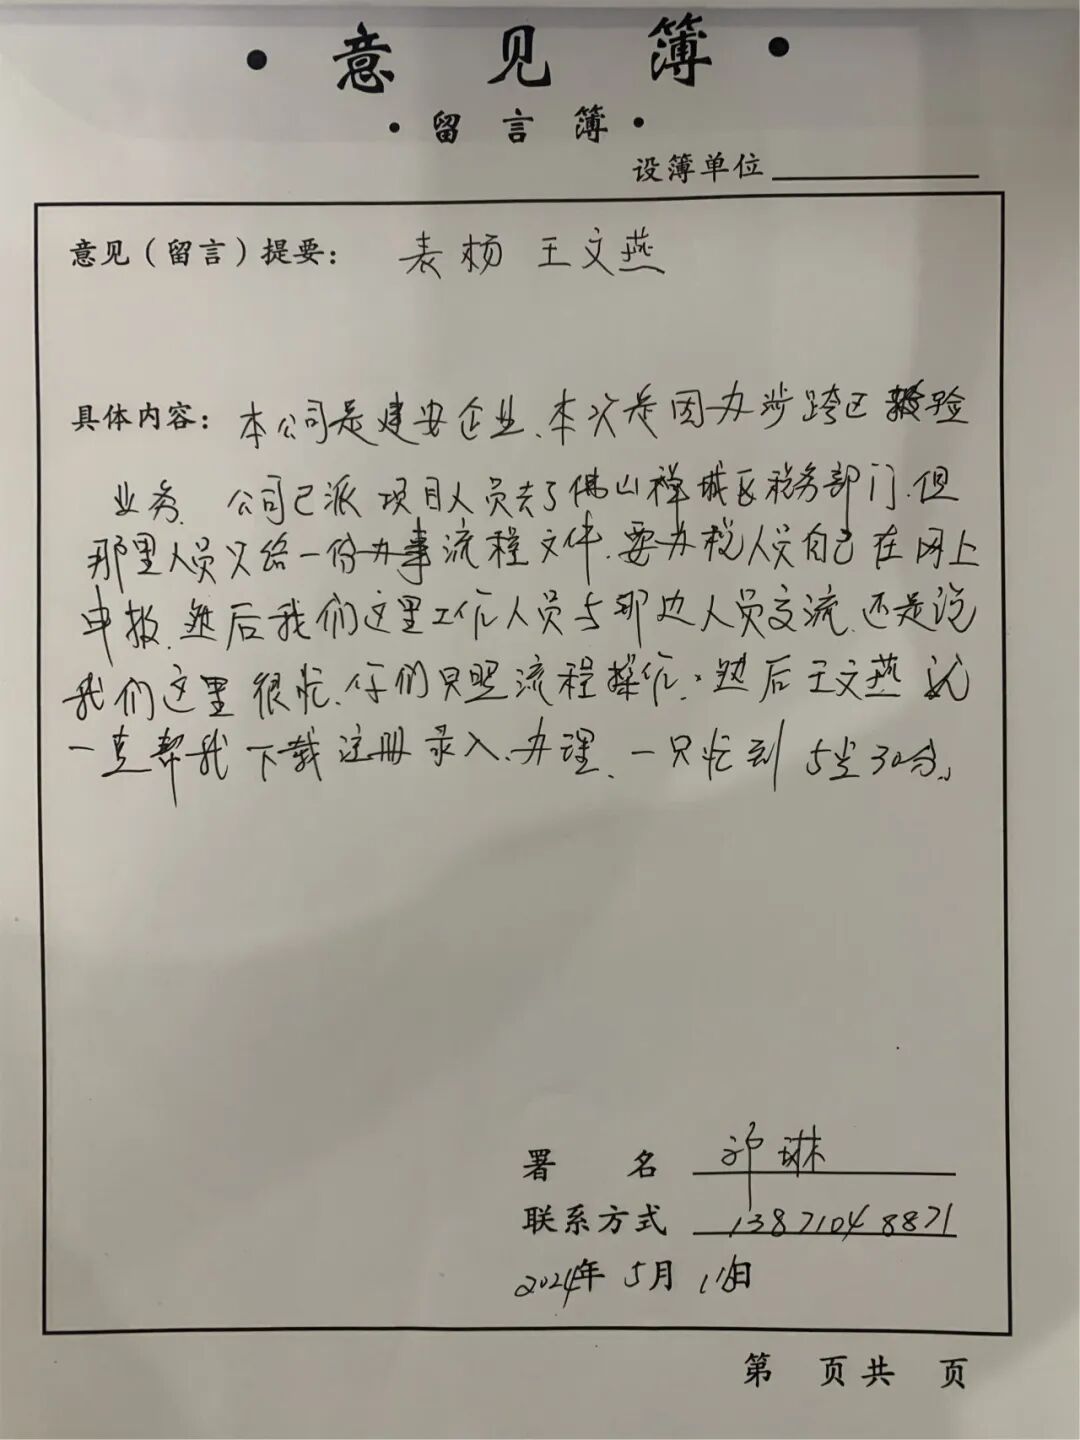 · 意 见 簿 ·
· 留 言 簿 ·
设簿单位
意见（留言）提要： 表杨 王文燕
具体内容： 本公司是建安企业、本次是因办涉跨区报验
业务. 公司已派项目人员去了佛山禅城区税务部门.但
那里人员只给一份办事流程文件.要办税人员自己在网上
申报.然后我们这里工作人员与那边人员交流.还是说
我们这里很忙.你们只照流程操作.然后王文燕就
一直帮我下载注册录入、办理、一只忙到5点30分.
署 名 祁琳
联系方式 13871048871
2024年 5月 日
第 页 共 页